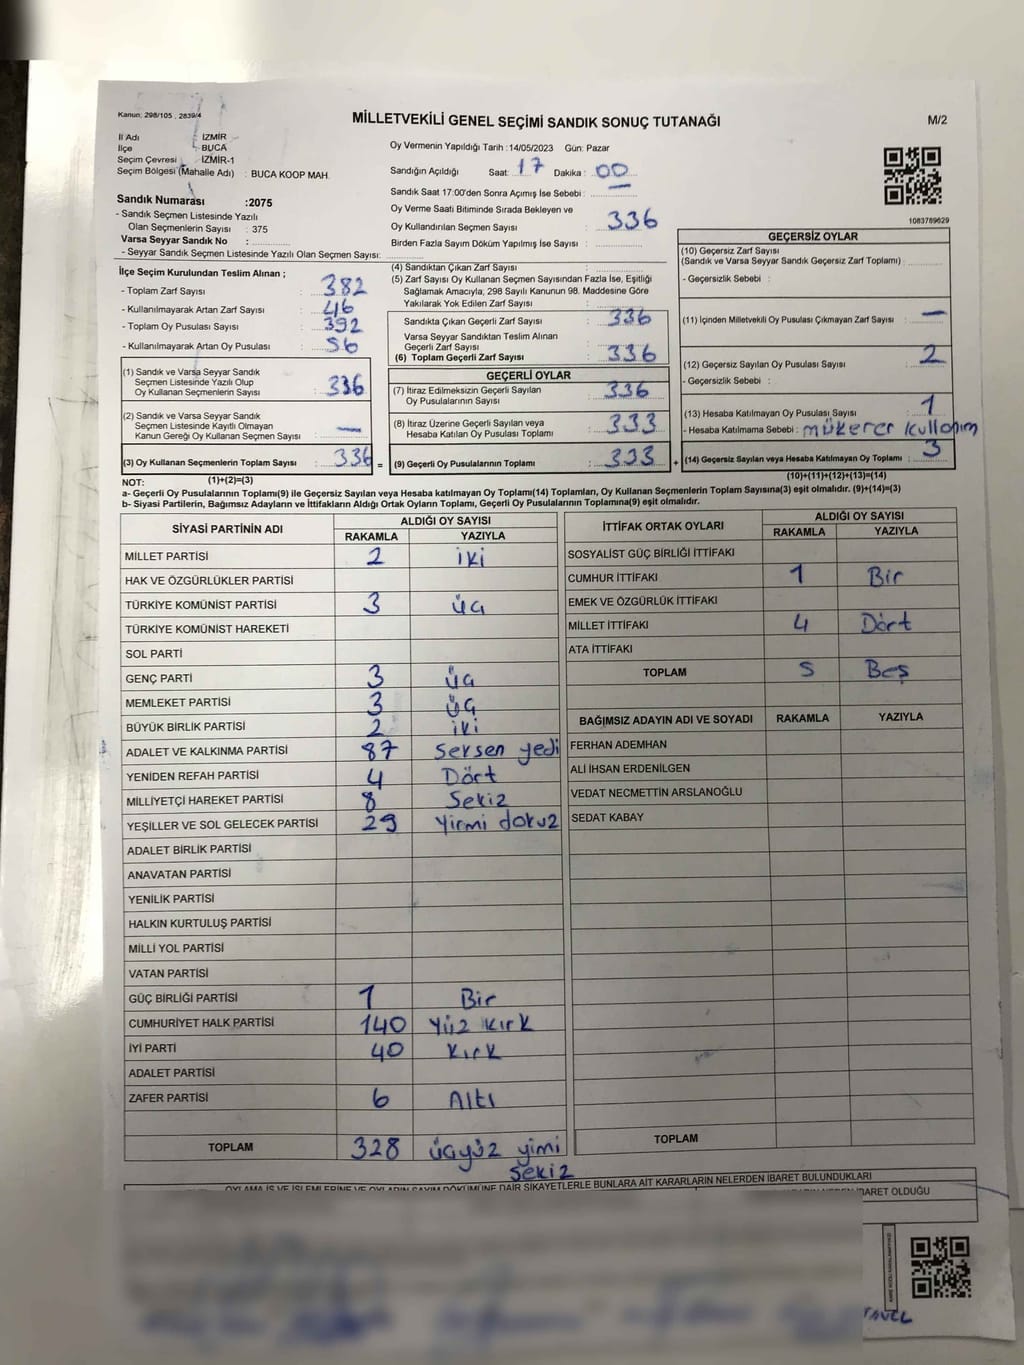 Kanun: 298/105 , 2839/4
MİLLETVEKİLİ GENEL SEÇİMİ SANDIK SONUÇ TUTANAĞI
M/2
İl Adı : İZMİR
İlçe : BUCA
Seçim Çevresi : İZMİR-1
Seçim Bölgesi (Mahalle Adı) : BUCA KOOP MAH.
Sandık Numarası :2075
- Sandık Seçmen Listesinde Yazılı
Olan Seçmenlerin Sayısı : 375
Varsa Seyyar Sandık No :
- Seyyar Sandık Seçmen Listesinde Yazılı Olan Seçmen Sayısı:
Oy Vermenin Yapıldığı Tarih :14/05/2023 Gün: Pazar
Sandığın Açıldığı Saat: 17 Dakika: 00
Sandık Saat 17:00'den Sonra Açımış İse Sebebi :
Oy Verme Saati Bitiminde Sırada Bekleyen ve
Oy Kullandırılan Seçmen Sayısı : 336
Birden Fazla Sayım Döküm Yapılmış İse Sayısı :
1083789629
İlçe Seçim Kurulundan Teslim Alınan ;
- Toplam Zarf Sayısı : 382
- Kullanılmayarak Artan Zarf Sayısı : 46
- Toplam Oy Pusulası Sayısı : 392
- Kullanılmayarak Artan Oy Pusulası : 56
(1) Sandık ve Varsa Seyyar Sandık
Seçmen Listesinde Yazılı Olup
Oy Kullanan Seçmenlerin Sayısı : 336
(2) Sandık ve Varsa Seyyar Sandık
Seçmen Listesinde Kayıtlı Olmayan
Kanun Gereği Oy Kullanan Seçmen Sayısı : —
(3) Oy Kullanan Seçmenlerin Toplam Sayısı : 336 =
(1)+(2)=(3)
(4) Sandıktan Çıkan Zarf Sayısı :
(5) Zarf Sayısı Oy Kullanan Seçmen Sayısından Fazla İse, Eşitliği
Sağlamak Amacıyla, 298 Sayılı Kanunun 98. Maddesine Göre
Yakılarak Yok Edilen Zarf Sayısı :
Sandıkta Çıkan Geçerli Zarf Sayısı : 336
Varsa Seyyar Sandıktan Teslim Alınan
Geçerli Zarf Sayısı :
(6) Toplam Geçerli Zarf Sayısı : 336
GEÇERLİ OYLAR
(7) İtiraz Edilmeksizin Geçerli Sayılan
Oy Pusulalarının Sayısı : 336
(8) İtiraz Üzerine Geçerli Sayılan veya
Hesaba Katılan Oy Pusulaları Toplamı : 333
(9) Geçerli Oy Pusulalarının Toplamı : 333 +
GEÇERSİZ OYLAR
(10) Geçersiz Zarf Sayısı
(Sandık ve Varsa Seyyar Sandık Geçersiz Zarf Toplamı) :
- Geçersizlik Sebebi :
(11) İçinden Milletvekili Oy Pusulası Çıkmayan Zarf Sayısı : —
(12) Geçersiz Sayılan Oy Pusulası Sayısı : 2
- Geçersizlik Sebebi :
(13) Hesaba Katılmayan Oy Pusulası Sayısı : 1
- Hesaba Katılmama Sebebi : mükerer kullanım
(14) Geçersiz Sayılan veya Hesaba Katılmayan Oy Toplamı : 3
(10)+(11)+(12)+(13)=(14)
NOT:
a- Geçerli Oy Pusulalarının Toplamı(9) ile Geçersiz Sayılan veya Hesaba katılmayan Oy Toplamı(14) Toplamları, Oy Kullanan Seçmenlerin Toplam Sayısına(3) eşit olmalıdır. (9)+(14)=(3)
b- Siyasi Partilerin, Bağımsız Adayların ve İttifakların Aldığı Ortak Oyların Toplamı, Geçerli Oy Pusulalarının Toplamına(9) eşit olmalıdır.
SİYASİ PARTİNİN ADI ALDIĞI OY SAYISI
RAKAMLA YAZIYLA
MİLLET PARTİSİ 2 iki
HAK VE ÖZGÜRLÜKLER PARTİSİ
TÜRKİYE KOMÜNİST PARTİSİ 3 üç
TÜRKİYE KOMÜNİST HAREKETİ
SOL PARTİ
GENÇ PARTİ 3 üç
MEMLEKET PARTİSİ 3 üç
BÜYÜK BİRLİK PARTİSİ 2 iki
ADALET VE KALKINMA PARTİSİ 87 Seksen yedi
YENİDEN REFAH PARTİSİ 4 Dört
MİLLİYETÇİ HAREKET PARTİSİ 8 Sekiz
YEŞİLLER VE SOL GELECEK PARTİSİ 29 Yirmi dokuz
ADALET BİRLİK PARTİSİ
ANAVATAN PARTİSİ
YENİLİK PARTİSİ
HALKIN KURTULUŞ PARTİSİ
MİLLİ YOL PARTİSİ
VATAN PARTİSİ
GÜÇ BİRLİĞİ PARTİSİ 1 Bir
CUMHURİYET HALK PARTİSİ 140 Yüz kırk
İYİ PARTİ 40 Kırk
ADALET PARTİSİ
ZAFER PARTİSİ 6 Altı
TOPLAM 328 üçyüz yimi
sekiz
İTTİFAK ORTAK OYLARI ALDIĞI OY SAYISI
RAKAMLA YAZIYLA
SOSYALİST GÜÇ BİRLİĞİ İTTİFAKI
CUMHUR İTTİFAKI 1 Bir
EMEK VE ÖZGÜRLÜK İTTİFAKI
MİLLET İTTİFAKI 4 Dört
ATA İTTİFAKI
TOPLAM 5 Beş
BAĞIMSIZ ADAYIN ADI VE SOYADI RAKAMLA YAZIYLA
FERHAN ADEMHAN
ALİ İHSAN ERDENİLGEN
VEDAT NECMETTİN ARSLANOĞLU
SEDAT KABAY
TOPLAM
OYLAMA İŞ VE İŞLEMLERİNE VE OYLARIN SAYIM DÖKÜMÜNE DAİR ŞİKAYETLERLE BUNLARA AİT KARARLARIN NELERDEN İBARET BULUNDUKLARI
İBARET OLDUĞU